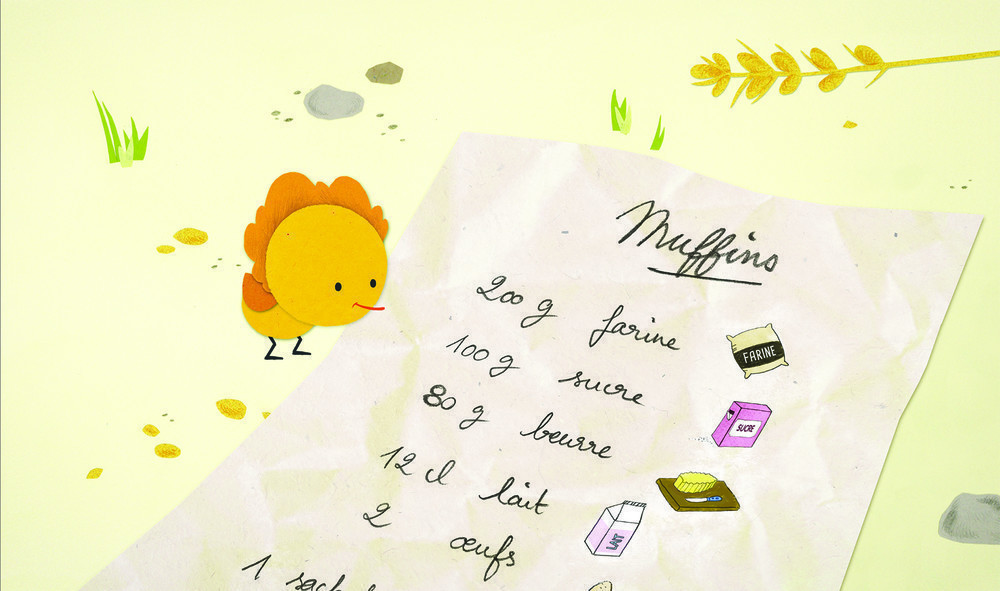 Muffins
200 g farine
FARINE
100 g sucre
SUCRE
80 g beurre
12 cl lait
LAIT
2 œufs
1